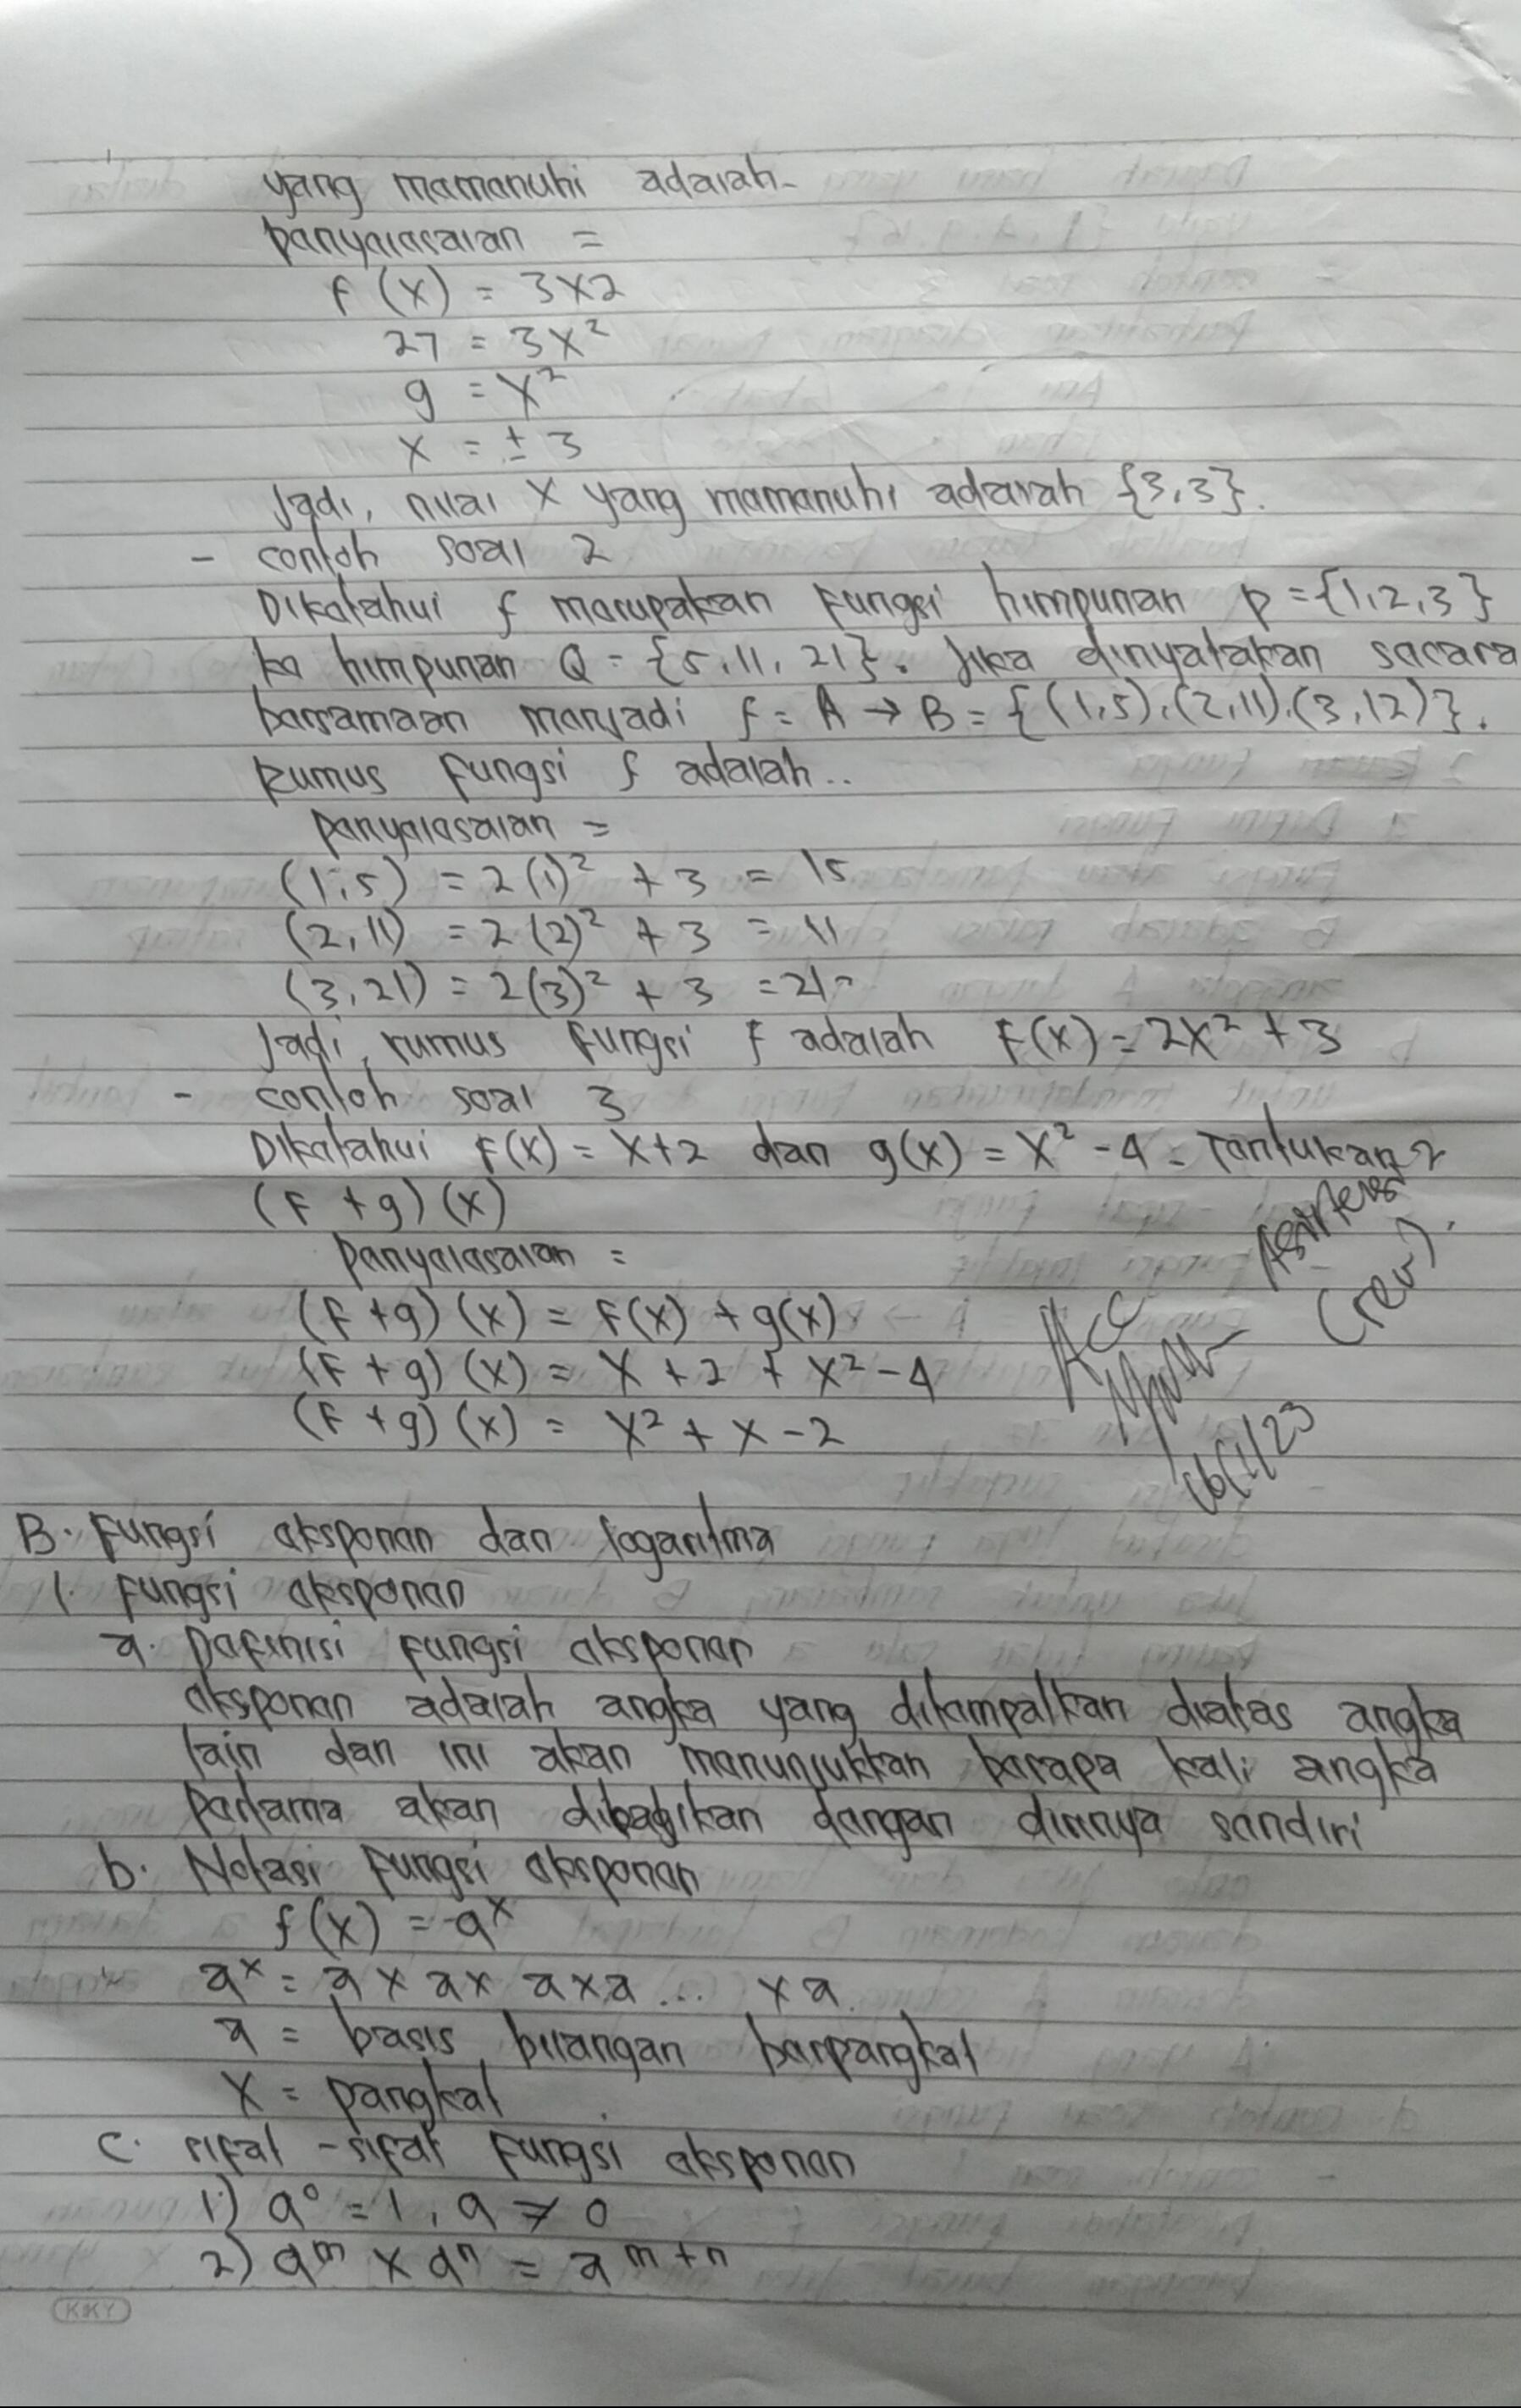 yang memenuhi adalah-
penyelesaian =
f (x) = 3x2
27 = 3x²
9 = x²
x = ± 3
Jadi, nilai x yang memenuhi adalah {3,3}.
- contoh soal 2
Diketahui f merupakan fungsi himpunan p = {1,2,3}
ke himpunan Q = {5,11,21}. Jika dinyatakan secara
bersamaan menjadi f = A → B = {(1,5),(2,11),(3,12)}.
Rumus fungsi f adalah..
penyelesaian =
(1,5) = 2(1)² + 3 = 15
(2,11) = 2(2)² + 3 = 11
(3,21) = 2(3)² + 3 = 21
Jadi, rumus fungsi f adalah f(x) = 2x² + 3
- contoh soal 3
Diketahui f(x) = x+2 dan g(x) = x² -4 - Tentukan
(f +g) (x)
penyelesaian =
(f +g) (x) = f(x) + g(x)
(f +g) (x) = x +2 + x² -4
(f +g) (x) = x² + x -2
Acc
(rev).
B. Fungsi eksponen dan logaritma
1. Fungsi eksponen
a. Definisi fungsi eksponen
eksponen adalah angka yang ditempatkan diatas angka
lain dan ini akan menunjukkan berapa kali angka
pertama akan dibagikan dengan dirinya sendiri
b. Notasi fungsi eksponen
f(x) = a^x
a^x = a x a x a x a ... x a
a = basis, bilangan berpangkat
x = pangkat
c. sifat -sifat fungsi eksponen
1) a⁰ = 1, a ≠ 0
2) a^m x a^n = a^m+n
KIKY